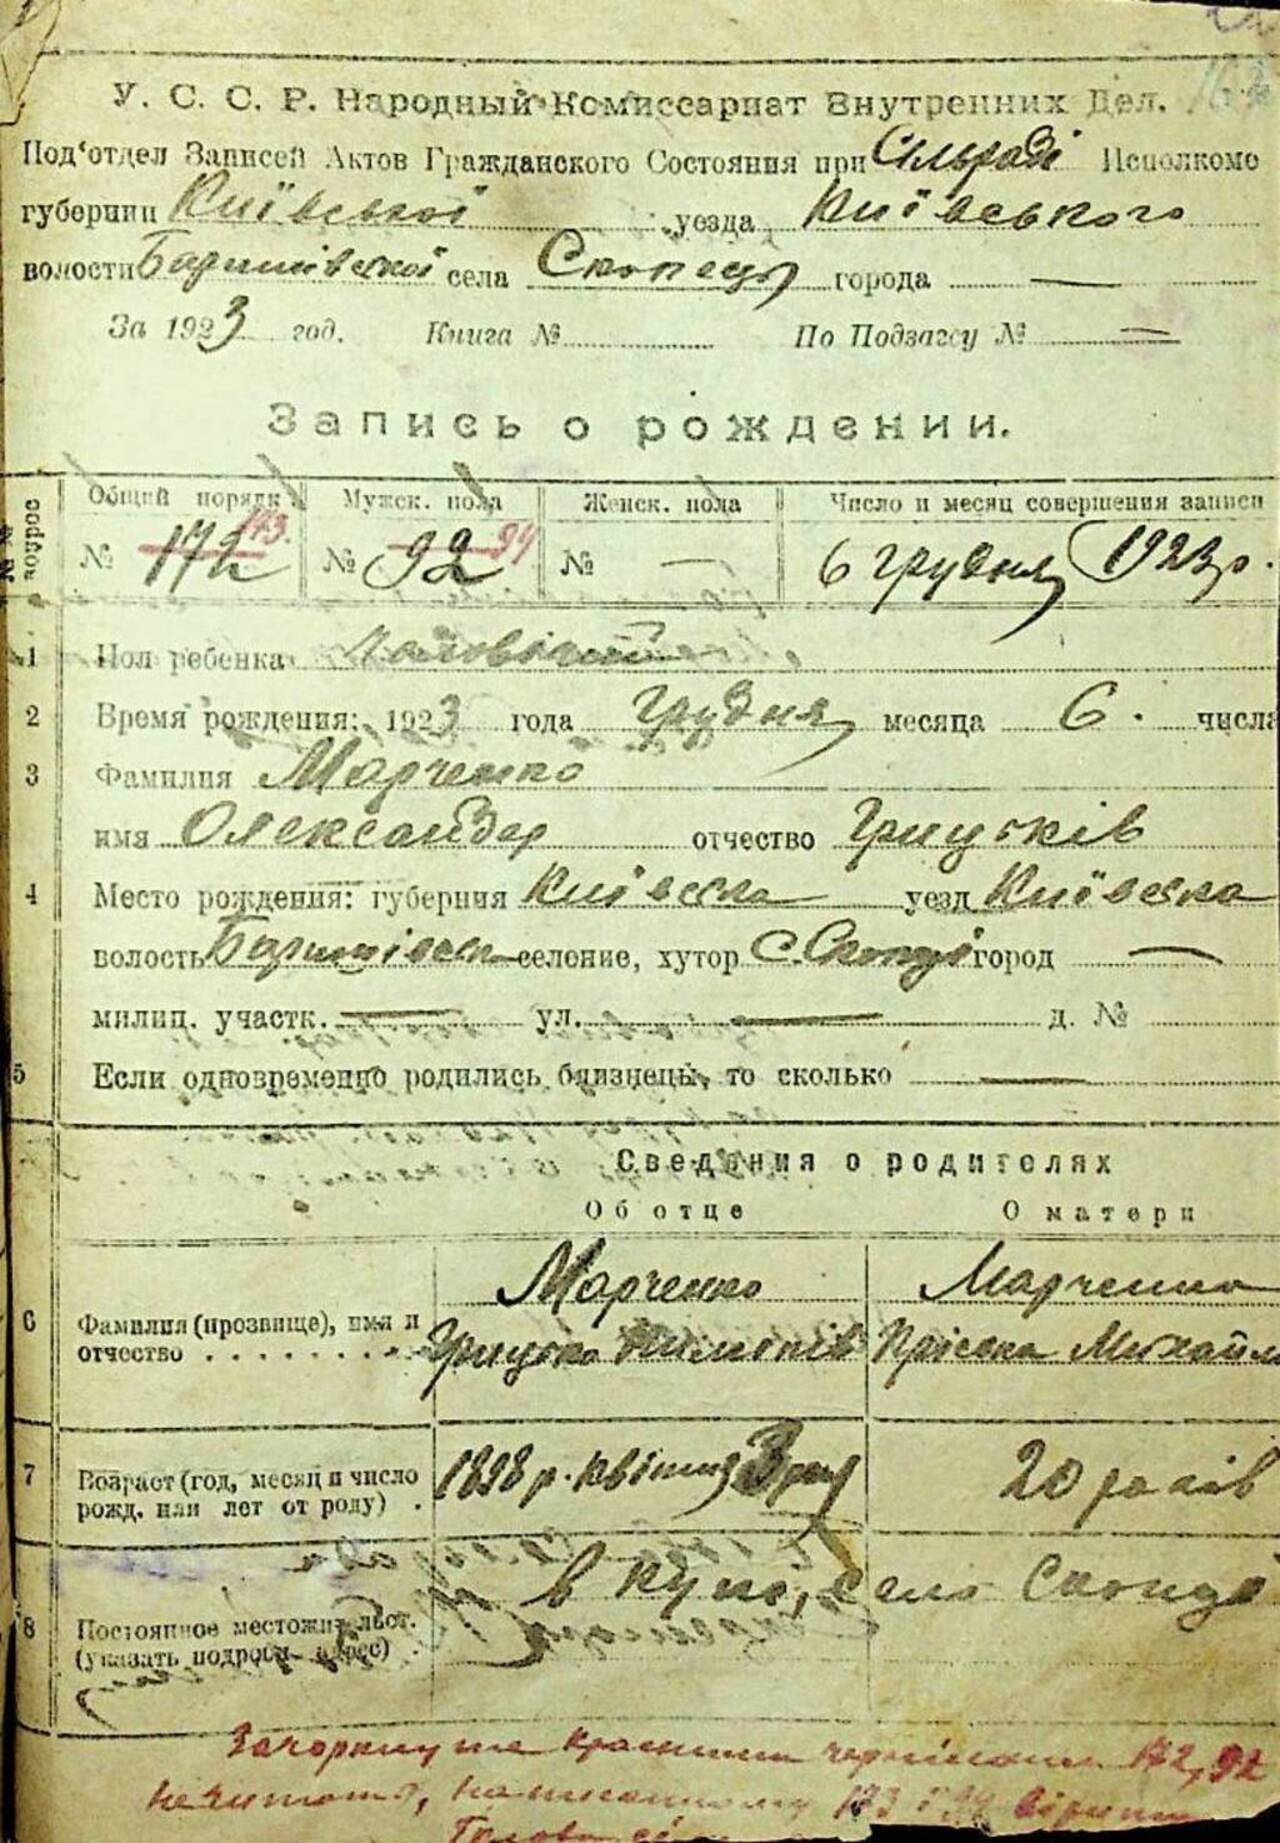 У. С. С. Р. Народный Комиссариат Внутренних Дел.
Под'отдел Записей Актов Гражданского Состояния при Сільраді Исполкомо
губернии Київської уезда Київського
волости Баришівської села Скопецьк города —
За 1923 год. Книга № По Подзагсу № —
Запись о рождении.
Общий порядк Мужск. пола Женск. пола Число и месяц совершения записи
№ 172 173. № 92 94 № — 6 грудня 1923 р.
1 Пол ребенка Чоловічий
2 Время рождения: 1923 года Грудня месяца 6. числа
3 Фамилия Марченко
имя Олександер отчество Грицьків
4 Место рождения: губерния Київсска уезд Київсска
волость Баришівсск селение, хутор с. Скопці город —
милиц. участк. — ул. — д. №
5 Если одновременно родились близнецы, то сколько —
Сведения о родителях
Об отце О матери
Марченко Марченко
6 Фамилия (прозвище), имя и
отчество Грицько Пріська Михайл
7 Возраст (год, месяц и число
рожд. или лет от роду) 1898 р. квітня 3 20 років
в купі, село Скопці
8 Постоянное местожительст.
(указать подробн. адрес)
Закоркнуте красними чернілами 172, 92
нечитать, написанному 173 і 94 вірить
Голова